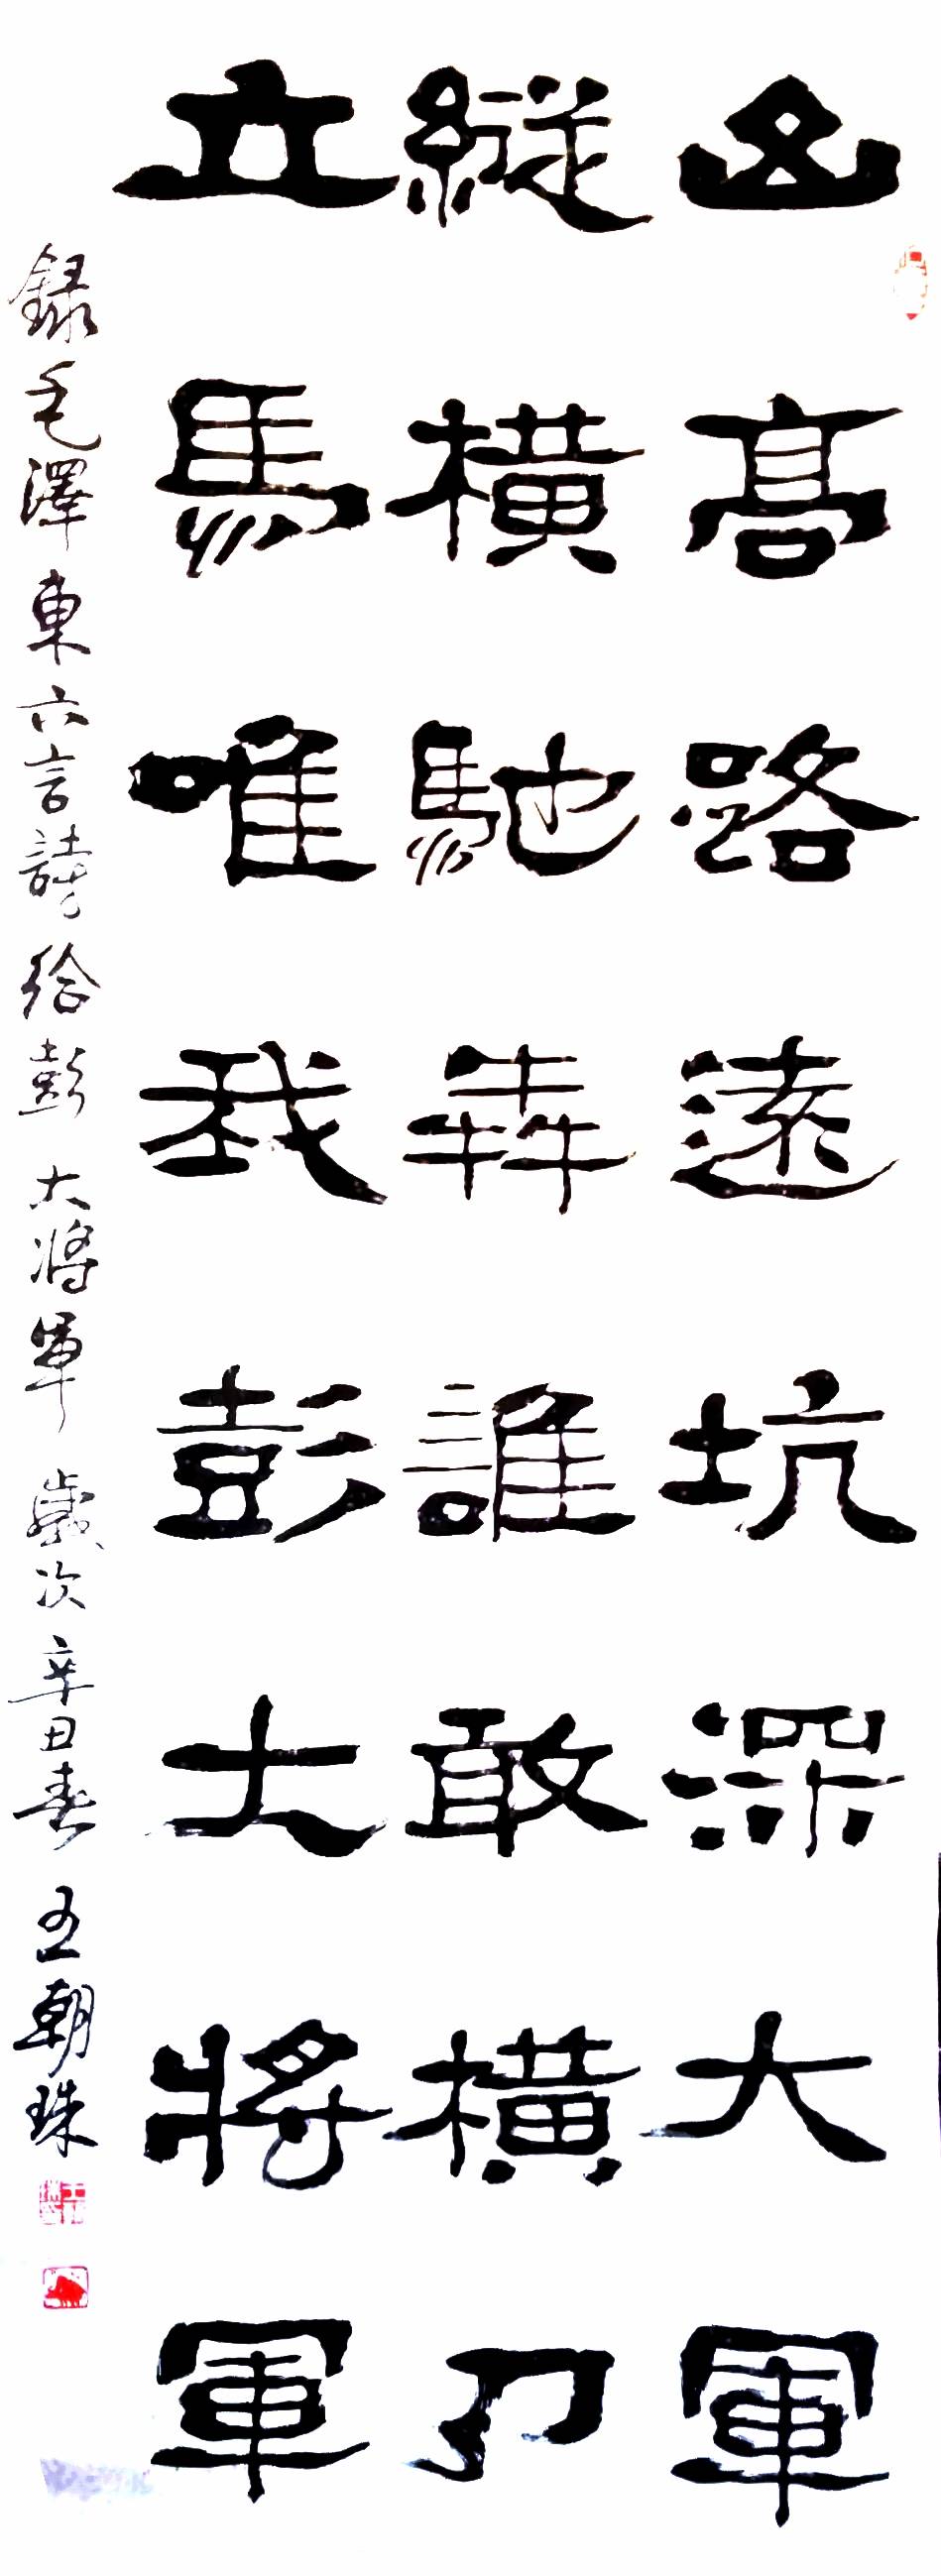 山高路遠坑深大軍
縱橫馳犇誰敢橫刀
立馬唯我彭大將軍
録毛澤東六言詩給彭大將軍歲次辛丑春王朝珠